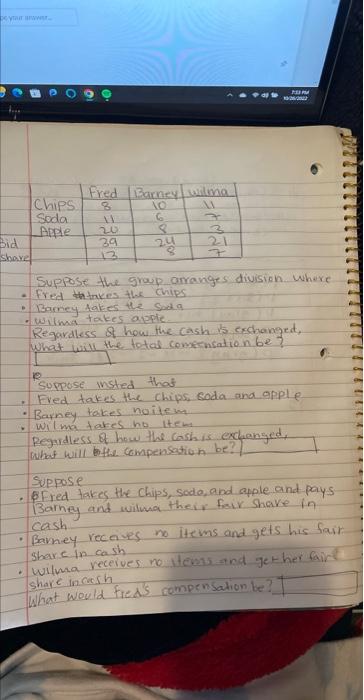 7:53 PM
10/26/2022
Fred Barney wilma
Chips 8 10 11
Soda 11 6 7
Apple 20 8 3
Bid 39 24 21
share 13 8 7
Suppose the group arranges division where
• Fred takes the chips
• Barney takes the soda
• wilma takes apple
Regardless of how the cash is exchanged,
what will the total comensation be?
Suppose insted that
• Fred takes the chips, soda and apple
• Barney takes no item
• Wilma takes no Item
Regardless of how the cash is exchanged,
what will the compensation be?
Suppose
• Fred takes the Chips, soda, and apple and pays
Barney and wilma their fair share in
cash
• Barney receives no items and gets his fair
share in cash
• Wilma receives no items and get her fair
share in cash
What would Fred's compensation be?